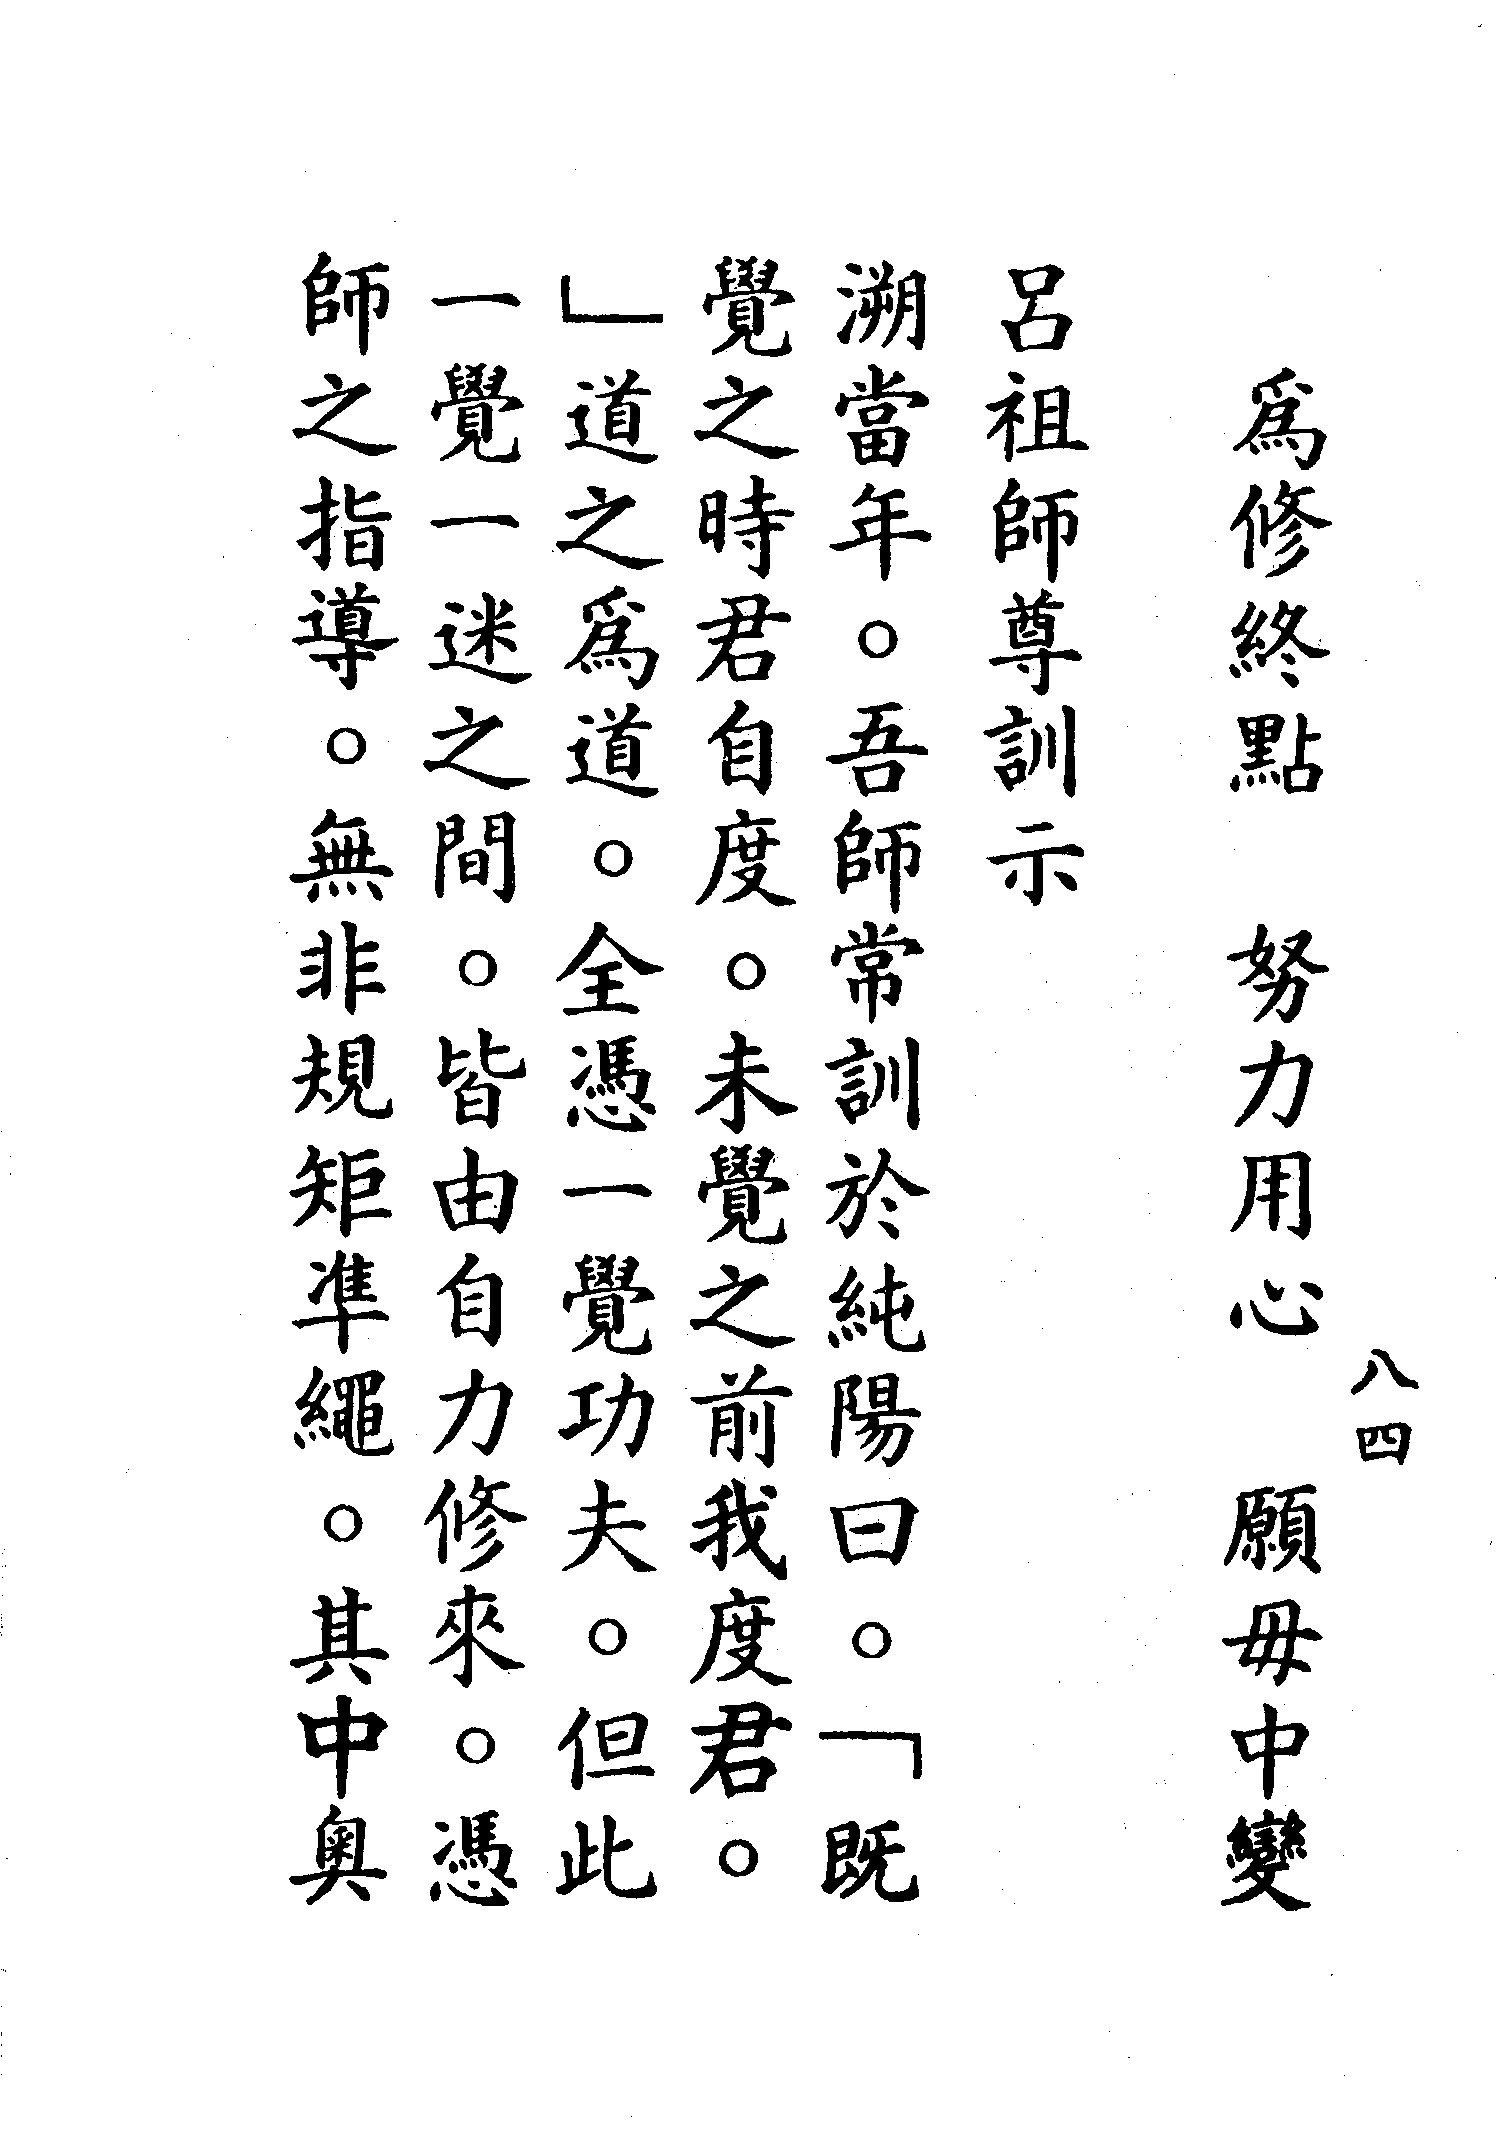 八四
為修終點　努力用心　願毋中變
呂祖師尊訓示
溯當年。吾師常訓於純陽曰。「既
覺之時君自度。未覺之前我度君。
」道之為道。全憑一覺功夫。但此
一覺一迷之間。皆由自力修來。憑
師之指導。無非規矩準繩。其中奧